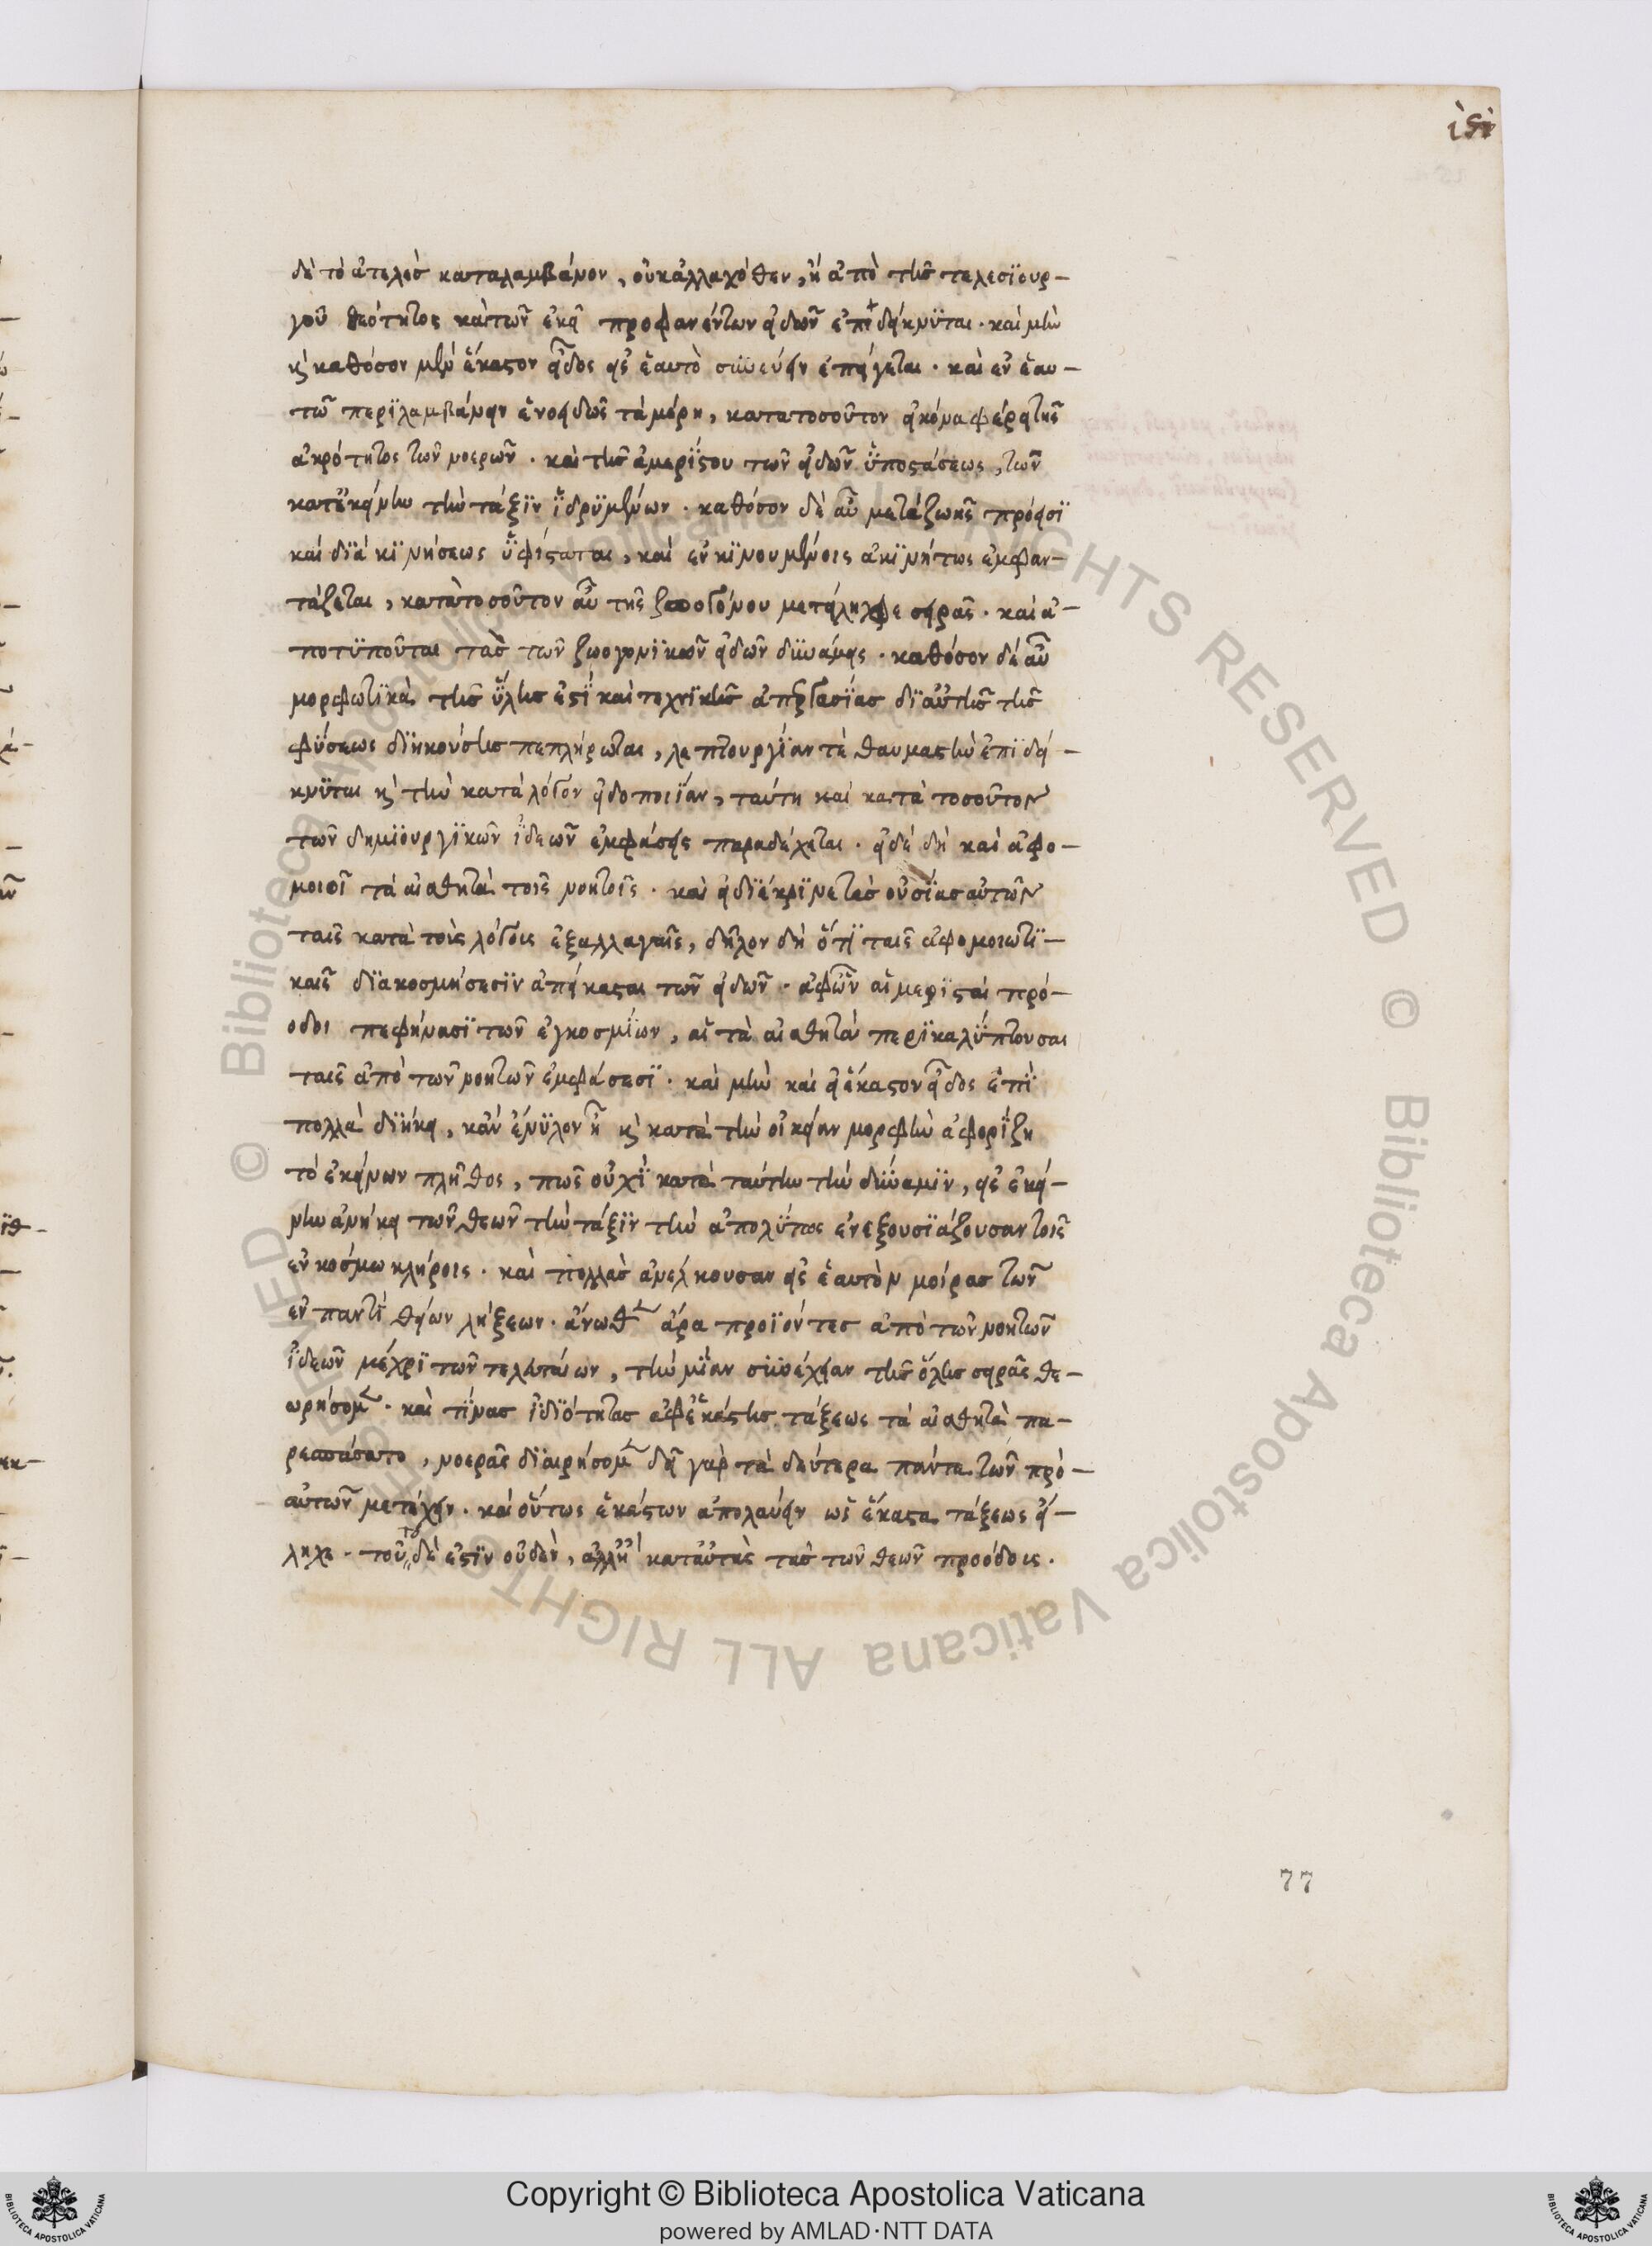 ιϛι
δὲ τὸ ἀτελὲσ καταλαμβάνον, οὐκἀλλαχόθεν, ἢ ἀπὸ τῆσ τελεσϊουρ-
γοῦ θεότητος καὶτῶν ἐκεῖ προφανέντων εἰδῶν ἐπιδείκνϋται. καὶ μὴν
καὶ καθόσον μὲν ἕκαστον εἶδος εἰς ἑαυτὸ συννεύειν ἐπείγεται. καὶ ἐν ἑαυ-
τῶ περϊλαμβάνειν ἑνοειδῶς τὰ μέρη, κατατοσοῦτον εἰκόνα φέρει τῆς
ἀκρότητος τῶν νοερῶν. καὶ τῆσ ἀμερίστου τῶν εἰδῶν ὑποστάσεως, τῶν
κατἐκείνην τὴν τάξϊν ἱδρϋμένων. καθόσον δὲ αὖ μετὰ ζωῆς πρόεισϊ
καὶ δϊὰ κϊνήσεως ὑφίσταται, καὶ ἐν κϊνουμένοις ἀκϊνήτως ἐμφαν-
τάζεται, κατὰτοσοῦτον αὖ τῆς ζωογόνου μετείληχε σειρᾶς. καὶ ἀ-
ποτϋποῦται τὰσ τῶν ζωογονϊκῶν εἰδῶν δϋνάμεις. καθόσον δὲ αὖ
μορφωτϊκὰ τῆσ ὕλησ ἐστϊ καὶ τεχνϊκῆσ ἀπεργασίασ δϊαὐτῆσ τῆσ
φύσεως δϊηκούσησ πεπλήρωται, λεπτουργίαν τὲ θαυμαστὴν ἐπϊδεί-
κνϋται καὶ τὴν κατὰ λόγον εἰδοποιΐαν, ταύτη καὶ κατὰ τοσοῦτον
τῶν δημϊουργϊκῶν ἰδεῶν ἐμφάσεις παραδέχεται. εἰ δὲ δὴ καὶ ἀφο-
μοιοῖ τὰ αἰσθητὰ τοῖς νοητοῖς. καὶ εἰ δϊέκρϊνε τὰσ οὐσίασ αὐτῶν
ταῖς κατὰ τοὺς λόγους ἐξαλλαγαῖς, δῆλον δὴ ὅτϊ ταῖς ἀφομοιωτϊ-
καῖς δϊακοσμήσεσϊν ἀπείκασται τῶν εἰδῶν. ἀφῶν αἱ μερϊσταὶ πρό-
οδοι πεφήνασϊ τῶν ἐγκοσμίων, αἱ τὰ αἰσθητὰ περϊκαλύπτουσαι
ταῖς ἀπὸ τῶν νοητῶν ἐμφάσεσϊ. καὶ μὴν καὶ εἰ ἕκαστον εἶδος ἐπὶ
πολλὰ δϊήκει, κἂν ἔνϋλον ἦ καὶ κατὰ τὴν οἰκείαν μορφὴν ἀφορίζη
τὸ ἐκείνων πλῆθος, πῶς οὐχὶ κατὰ ταύτην τὴν δύναμϊν, εἰς ἐκεί-
νην ἀνήκει τῶν θεῶν τὴν τάξϊν τὴν ἀπολύτως ἐνεξουσϊάζουσαν τοῖς
ἐν κόσμω κλήροις. καὶ πολλὰσ ἀνελκουσαν εἰς ἑαυτὸν μοίρασ τῶν
ἐν παντὶ θείων λήξεων. ἄνωθεν ἄρα προϊόντεσ ἀπὸ τῶν νοητῶν
ἰδεῶν μέχρϊ τῶν τελευταίων, τὴν μίαν συνέχειαν τῆσ ὅλησ σειρᾶς θε-
ωρήσομεν. καὶ τίνασ ἰδϊότητασ ἀφἑκάστησ τάξεως τὰ αἰσθητὰ πα-
ρεσπάσατο, νοερᾶς δϊαιρήσομεν δεῖ γὰρ τὰ δεύτερα πάντα τῶν πρὸ-
αὐτῶν μετέχειν. καὶ οὕτως ἑκάστων ἀπολαύειν ὡς ἕκαστα τάξεως εἴ-
ληχε. τοῦτο δὲ ἐστϊν οὐδὲν, ἀλλἢ κατἀυτὰς τὰσ τῶν θεῶν προόδους.
77
Copyright © Biblioteca Apostolica Vaticana
powered by AMLAD·NTT DATA